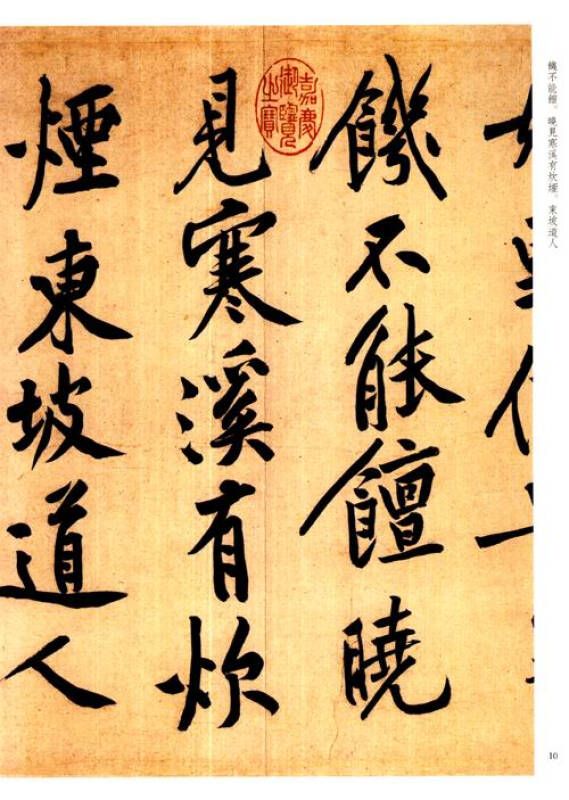 饑不能饘。曉見寒溪有炊煙。東坡道人
饑不能饘曉
嘉慶御覽之寶
見寒溪有炊
煙東坡道人
10